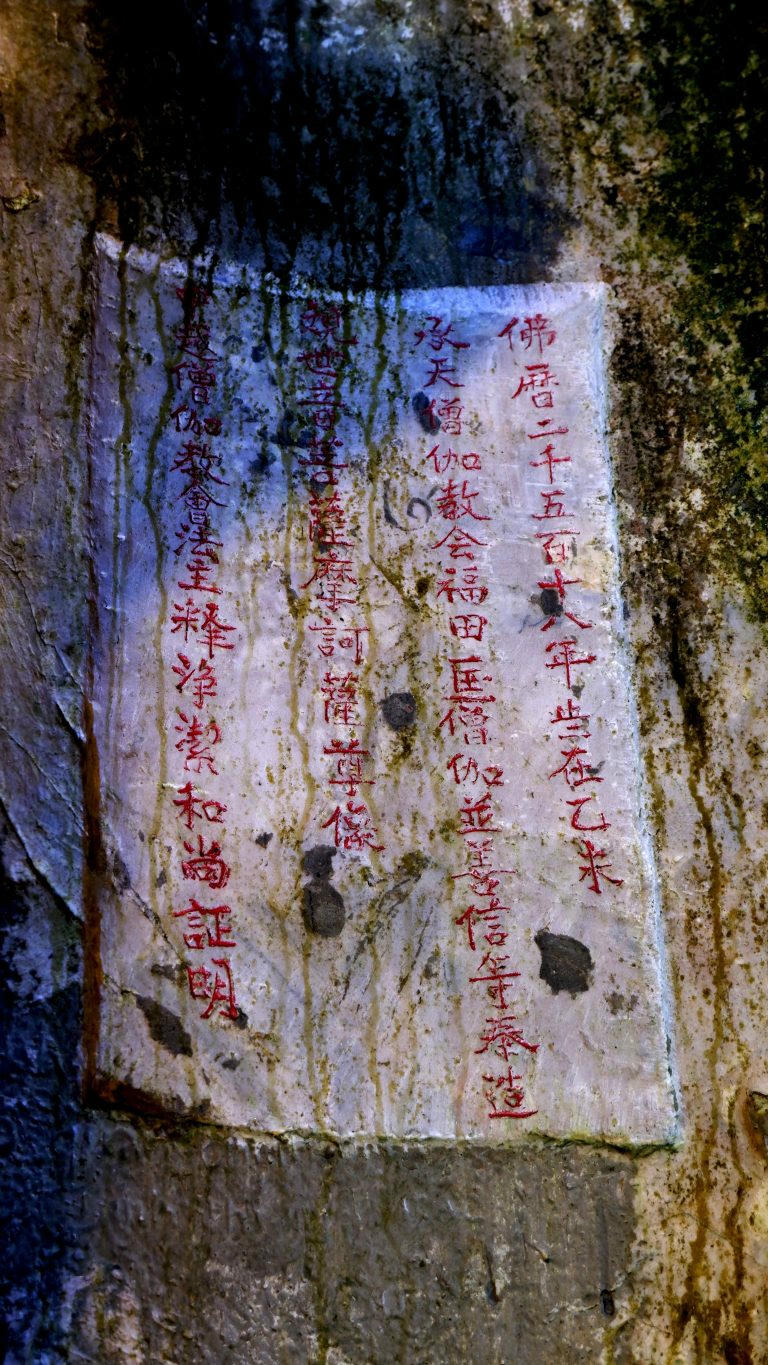 佛暦二千五百十八年亗在乙未
承天僧伽教会福田僧伽並善信等奉造
覌世音菩薩摩訶薩尊像
中越僧伽教會法主释淨潔和尚証明